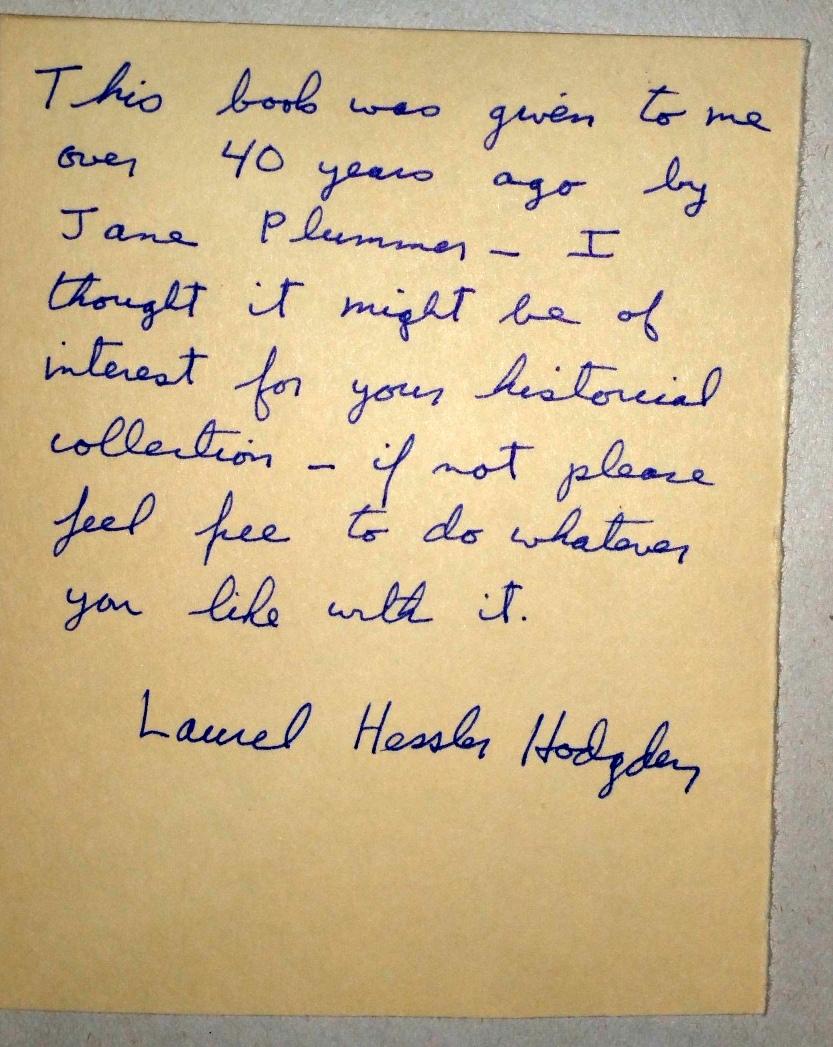 This book was given to me
over 40 years ago by
Jane Plummer – I
thought it might be of
interest for your historcial
collection – if not please
feel free to do whatever
you like with it.
Laurel Hessler Hodgden